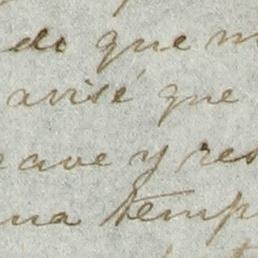 do que m
avisé que
ave y res
na temp